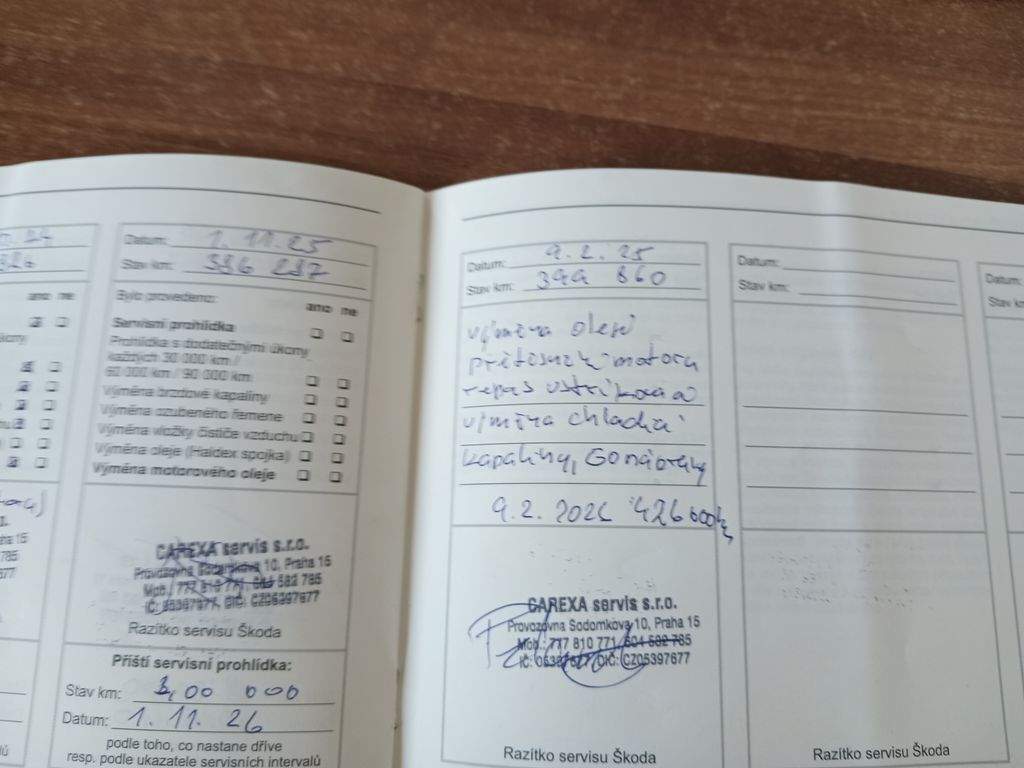 Datum: 1. 11. 25
Stav km: 396 237
Bylo provedeno:
ano ne
Servisní prohlídka
Prohlídka s dodatečnými úkony
každých 30 000 km /
60 000 km / 90 000 km
Výměna brzdové kapaliny
Výměna ozubeného řemene
Výměna vložky čističe vzduchu
Výměna oleje (Haldex spojka)
Výměna motorového oleje
CAREXA servis s.r.o.
Provozovna Sodomkova 10, Praha 15
Mob.: 777 810 771, 604 582 785
IČ: 05397677, DIČ: CZ05397677
Razítko servisu Škoda
Příští servisní prohlídka:
Stav km: 400 000
Datum: 1. 11. 26
podle toho, co nastane dříve
resp. podle ukazatele servisních intervalů
ano ne
Datum: 9. 2. 25
Stav km: 399 860
výměna olejů
motoru
repas
výměna chladící
kapaliny,
9. 2. 2026 426 600
CAREXA servis s.r.o.
Provozovna Sodomkova 10, Praha 15
Mob.: 777 810 771, 604 582 785
IČ: 05397677, DIČ: CZ05397677
Razítko servisu Škoda
Datum:
Stav km:
Razítko servisu Škoda
Datum: